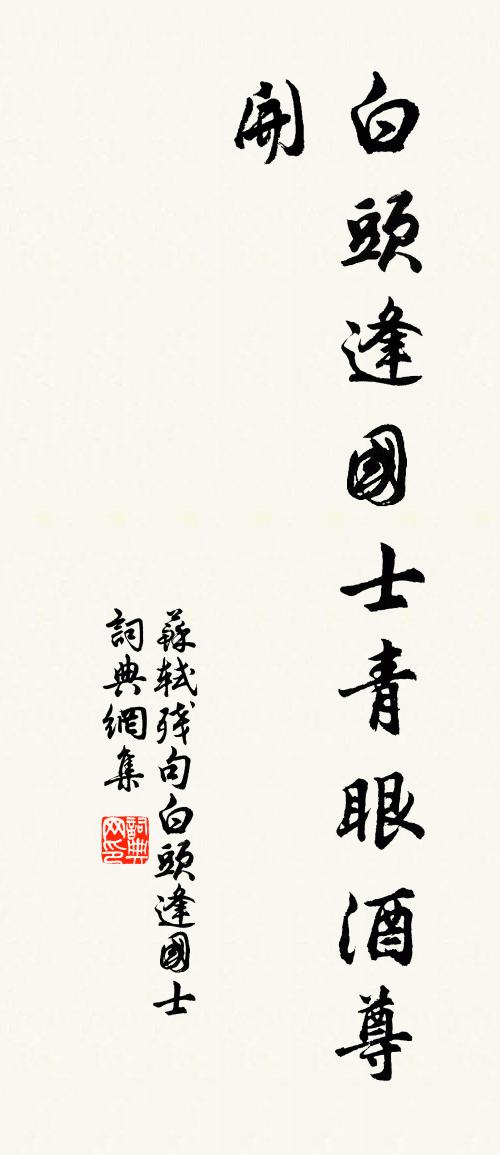 白頭逢國士青眼酒尊
開
蘇軾殘句白頭逢國士
詞典網集
詞典
网印